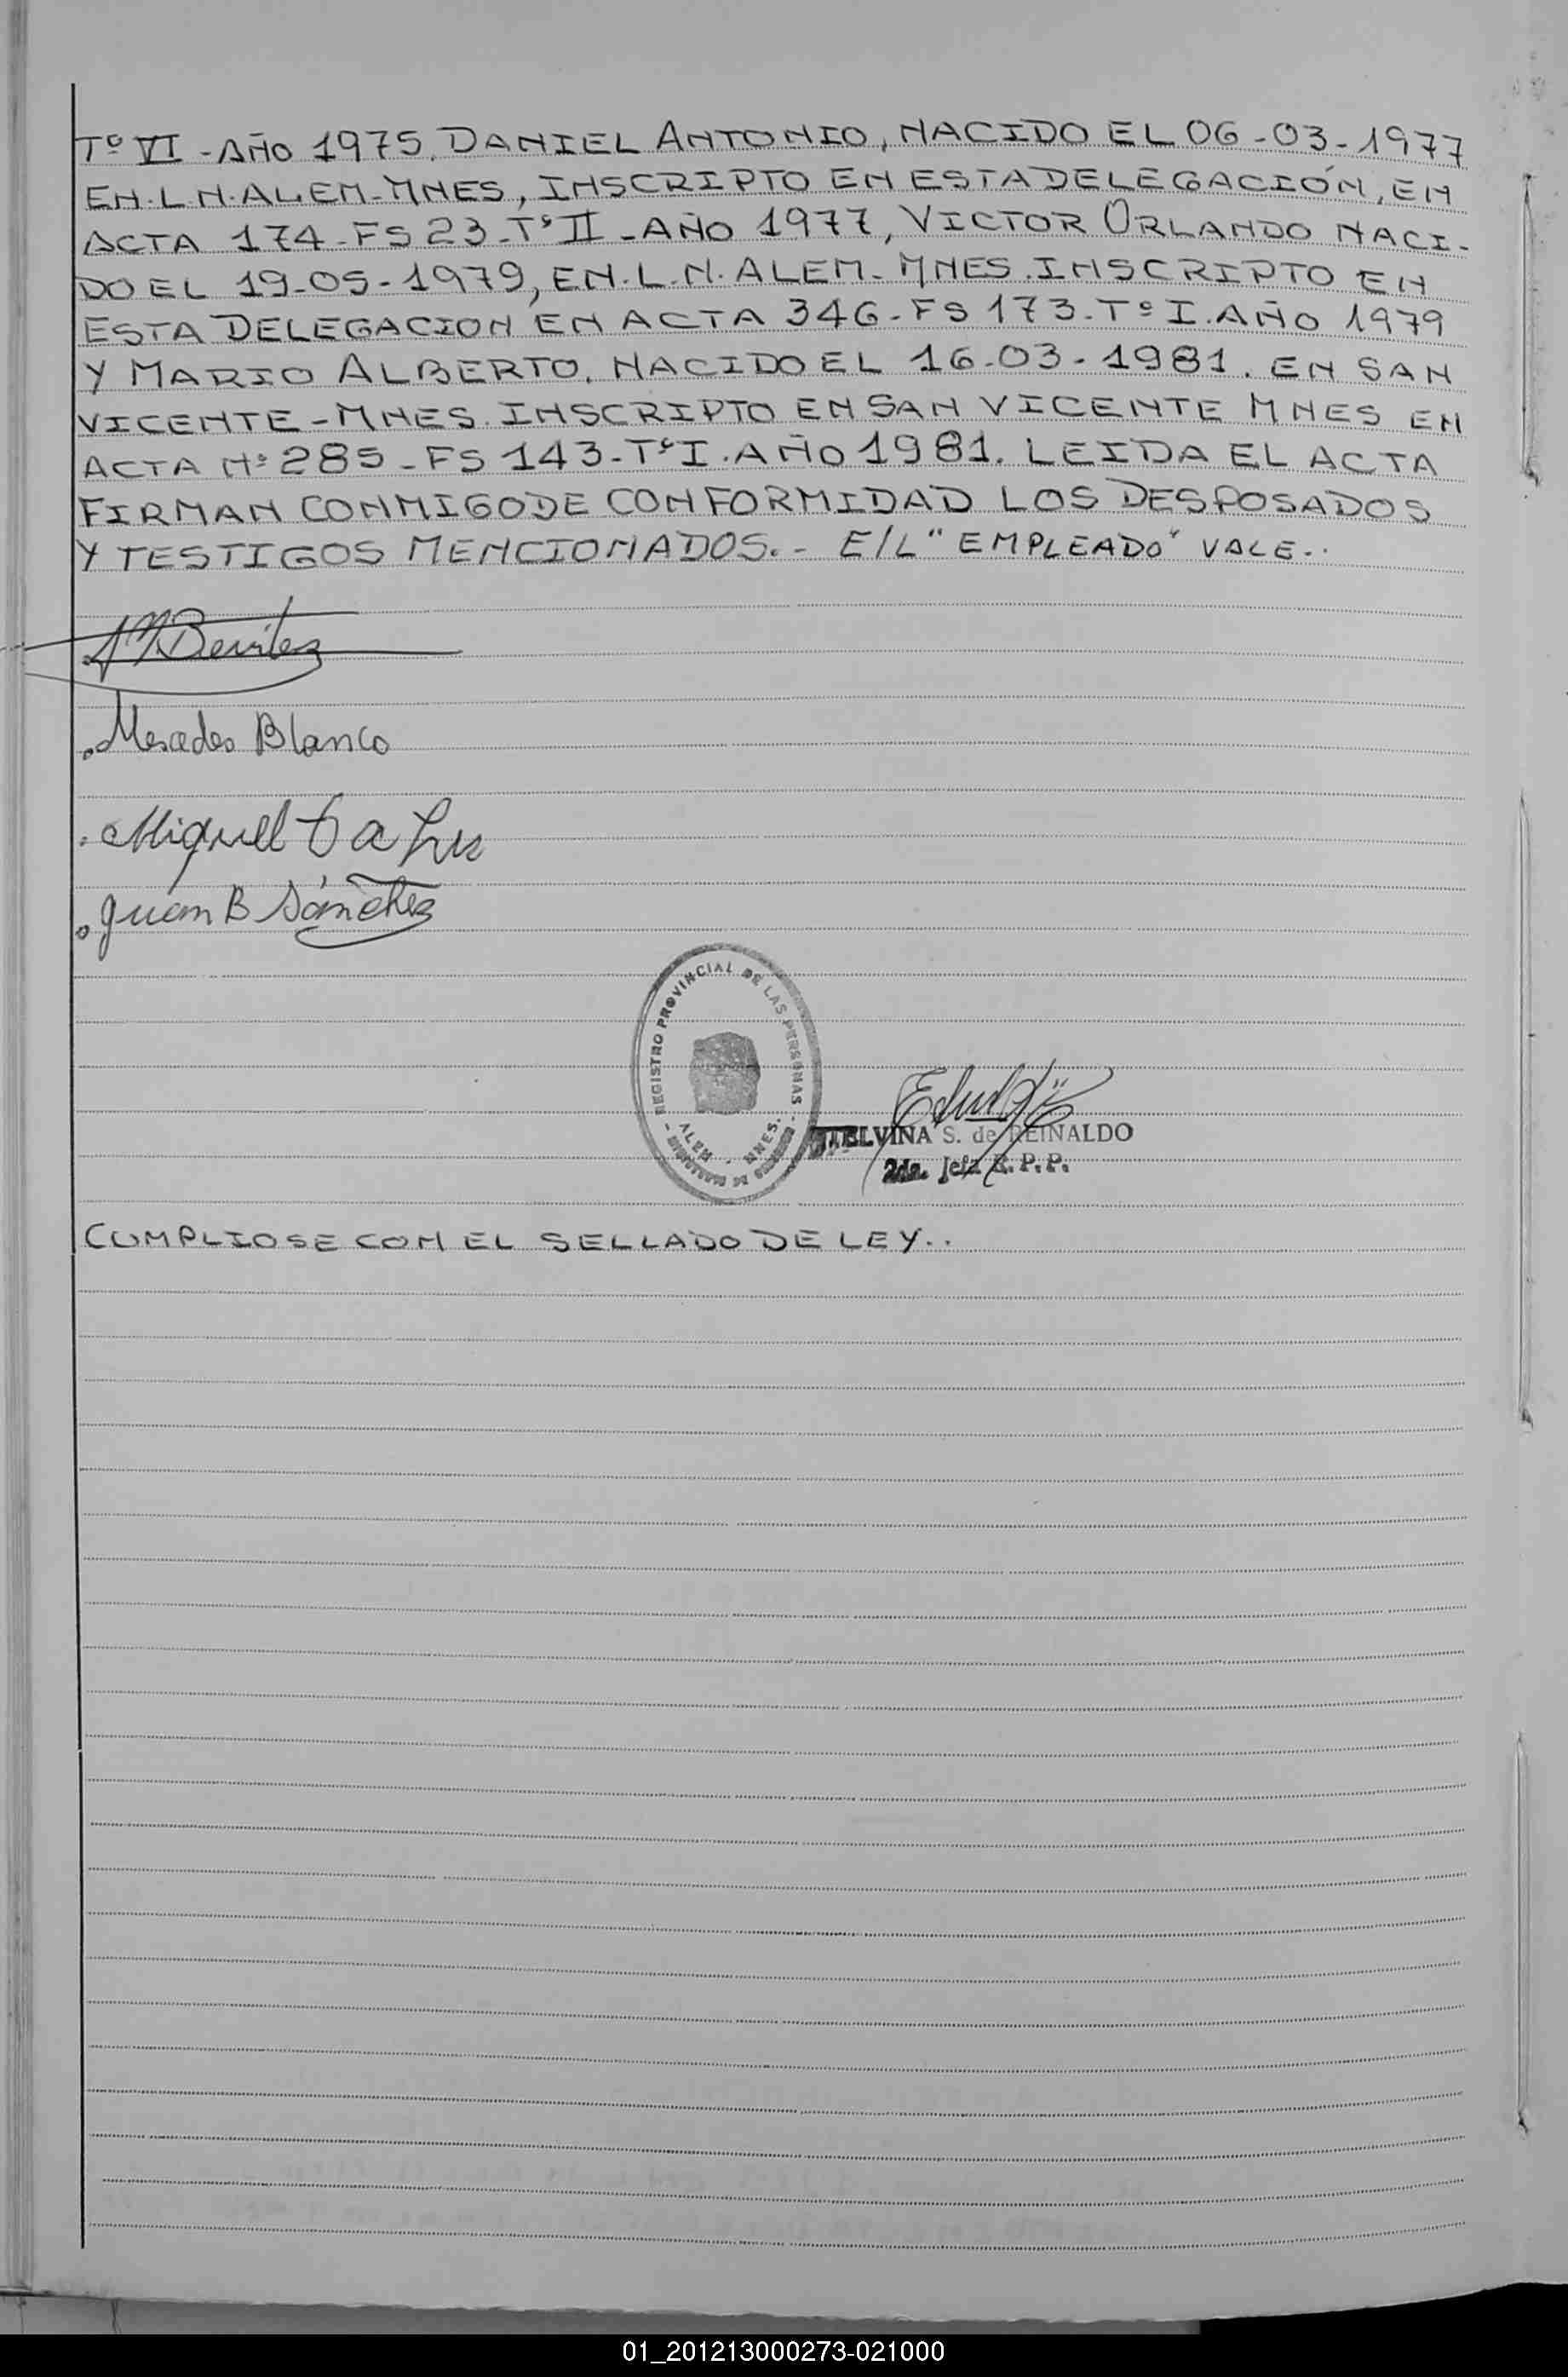 Tº VI - AÑO 1975. DANIEL ANTONIO, NACIDO EL 06-03-1977
EN.L.N.ALEM-MNES, INSCRIPTO EN ESTA DELEGACIÓN, EN
ACTA 174-FS 23-TºII-AÑO 1977, VICTOR ORLANDO NACI-
DO EL 19-05-1979, EN.L.N.ALEM-MNES.INSCRIPTO EN
ESTA DELEGACION EN ACTA 346-FS 173-TºI.AÑO 1979
Y MARIO ALBERTO, NACIDO EL 16-03-1981. EN SAN
VICENTE-MNES.INSCRIPTO EN SAN VICENTE MNES EN
ACTA Nº285-FS 143-TºI.AÑO 1981. LEIDA EL ACTA
FIRMAN CONMIGO DE CONFORMIDAD LOS DESPOSADOS
Y TESTIGOS MENCIONADOS.- E/L "EMPLEADO" VALE..
Benitez
Mercedes Blanco
Miguel
Juan B Sánchez
REGISTRO PROVINCIAL DE LAS PERSONAS
ALEM - MNES.
ELVINA S. de REINALDO
2da. Jefa R.P.P.
CUMPLIOSE CON EL SELLADO DE LEY..
01_201213000273-021000